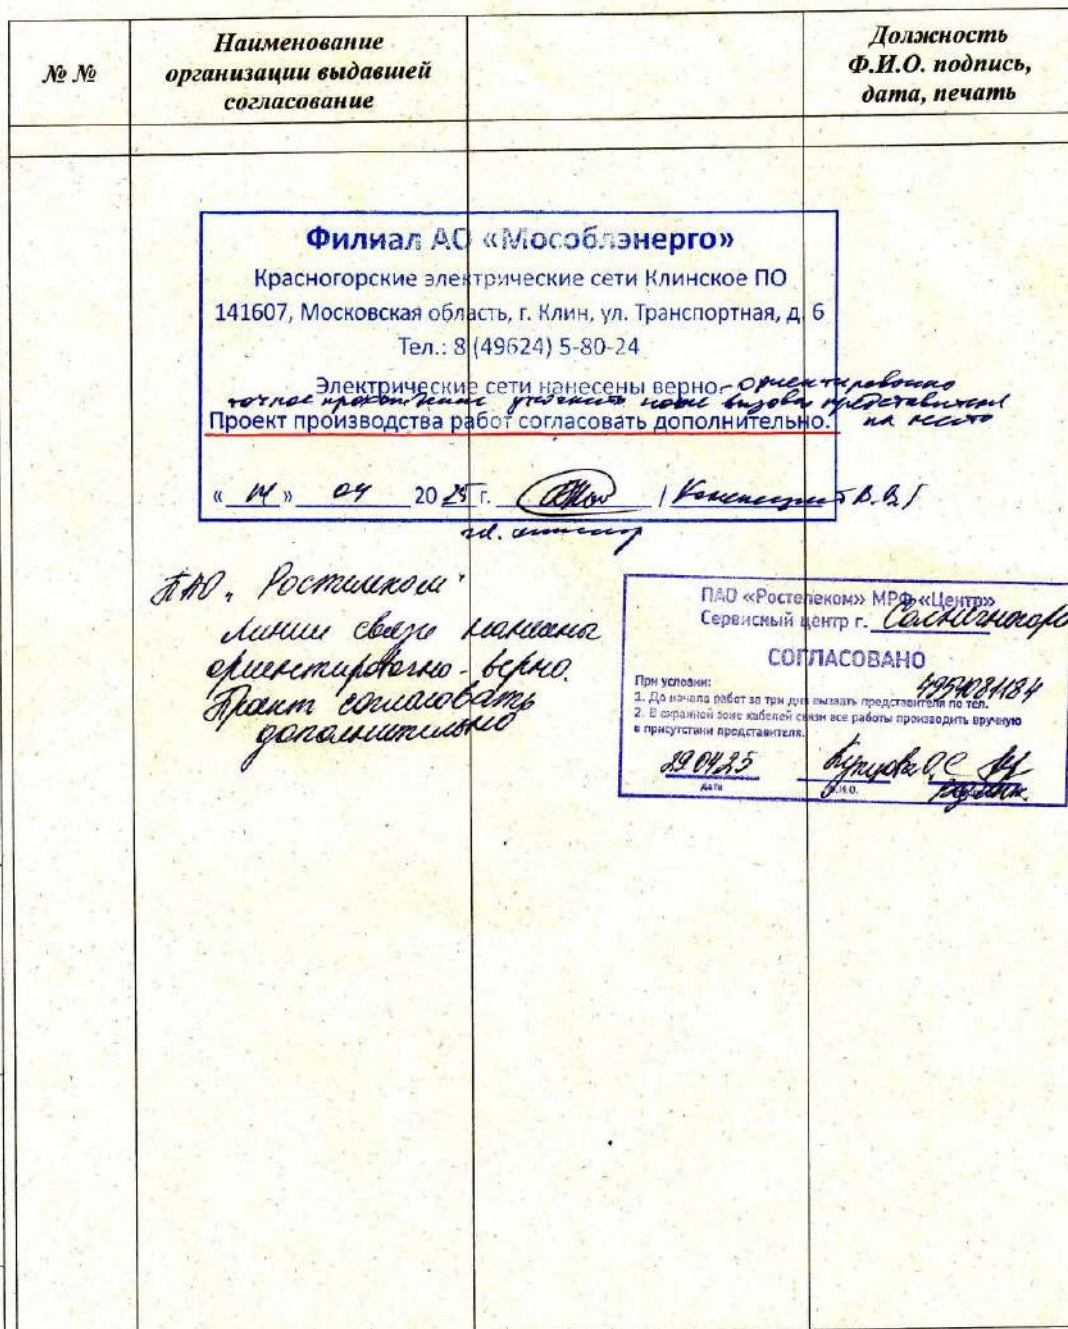 № №
Наименование
организации выдавшей
согласование
Должность
Ф.И.О. подпись,
дата, печать
Филиал АО «Мособлэнерго»
Красногорские электрические сети Клинское ПО
141607, Московская область, г. Клин, ул. Транспортная, д. 6
Тел.: 8 (49624) 5-80-24
Электрические сети нанесены верно. ориентировочно
точное прохождение уточнить после вызова представителя
на место
Проект производства работ согласовать дополнительно.
« » 04 2025 г. / В.В./
ПАО "Ростелеком"
Линии связи нанесены
ориентировочно-верно.
Проект согласовать
дополнительно
ПАО «Ростелеком» МРФ «Центр»
Сервисный центр г. Солнечногорск
СОГЛАСОВАНО
При условии:
4954081184
1. До начала работ за три дня вызвать представителя по тел.
2. В охранной зоне кабелей связи все работы производить вручную
в присутствии представителя.
29.04.25 О.С.
дата Ф.И.О.